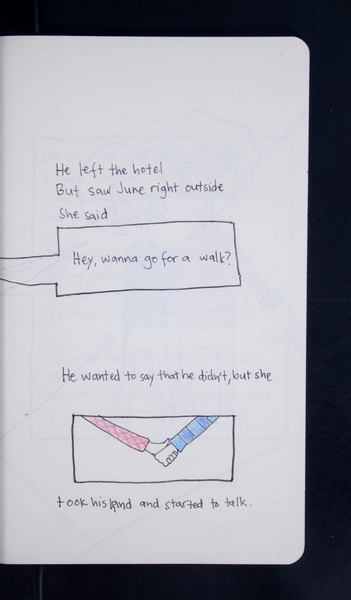 He left the hotel
But saw June right outside
She said
Hey, wanna go for a walk?
He wanted to say that he didn't, but she
took his hand and started to talk.